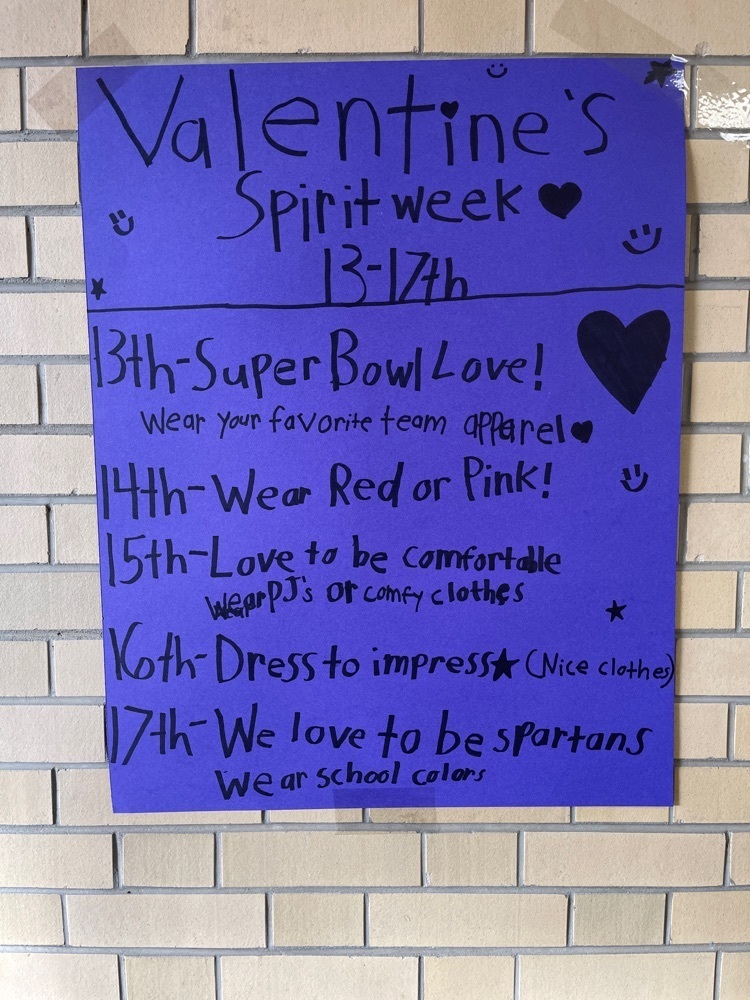 Valentine's
Spirit week
13-17th
13th-Super Bowl Love!
Wear your favorite team apparel
14th-Wear Red or Pink!
15th-Love to be comfortable
Wear PJ's or comfy clothes
16th-Dress to impress (Nice clothes)
17th-We love to be spartans
Wear school colors